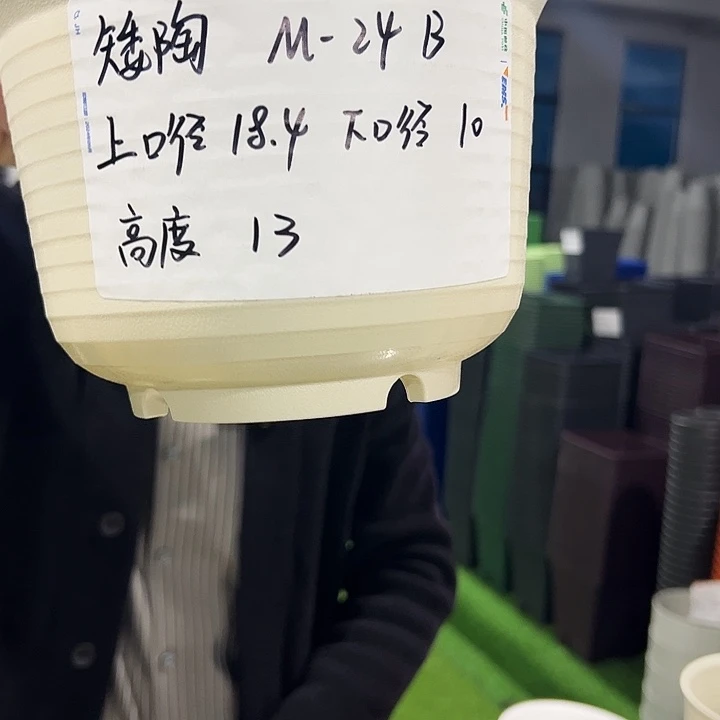 矮陶 M-24B
上口径 18.4 下口径 10
高度 13